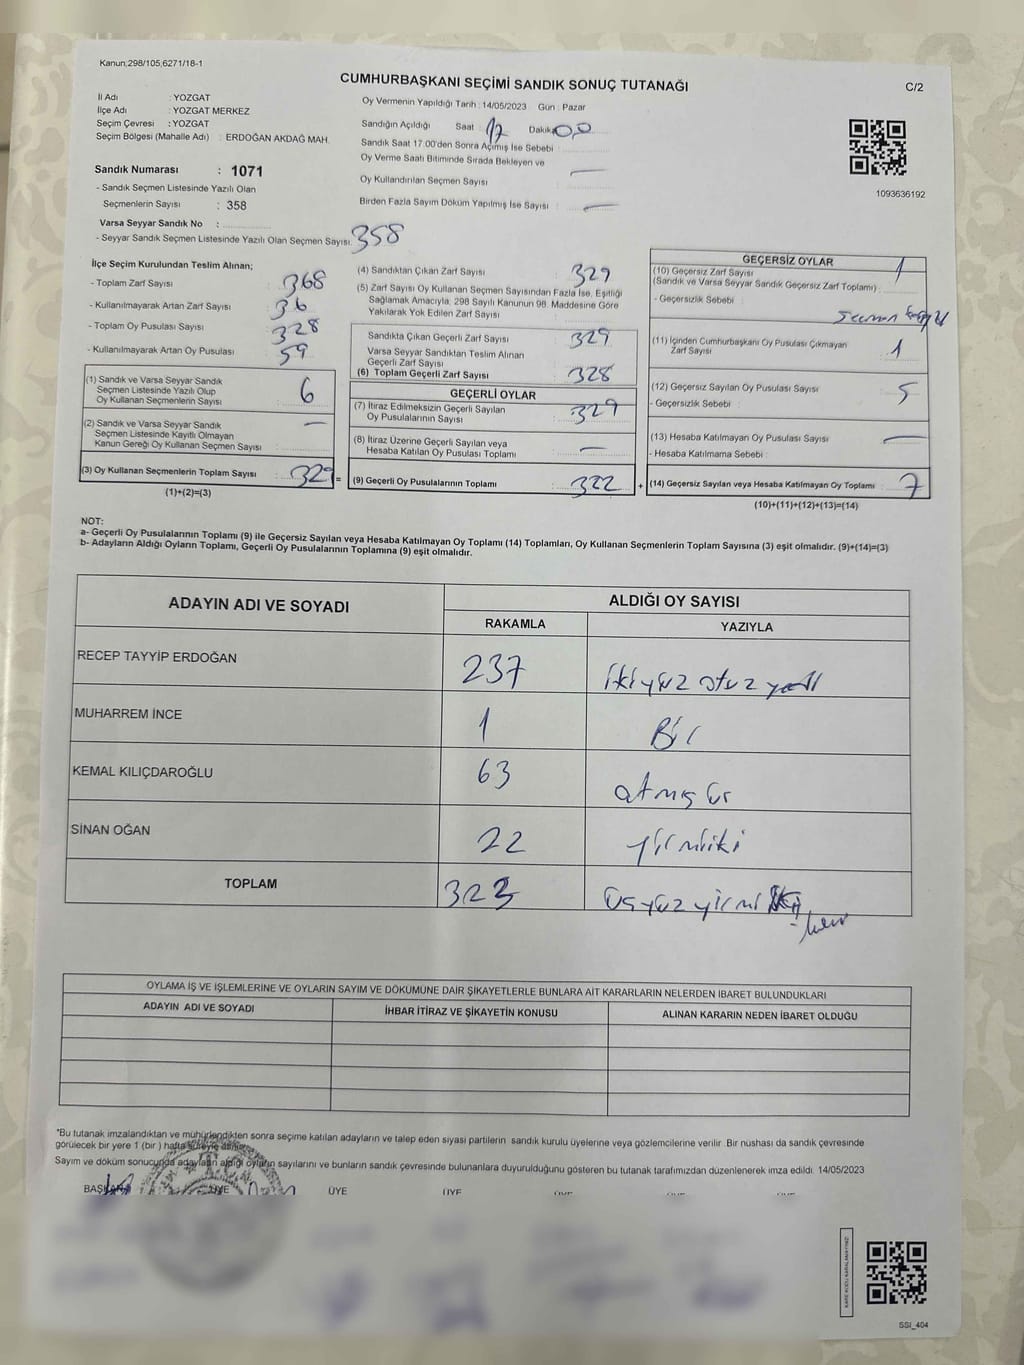 Kanun;298/105,6271/18-1
CUMHURBAŞKANI SEÇİMİ SANDIK SONUÇ TUTANAĞI
C/2
İl Adı : YOZGAT
İlçe Adı : YOZGAT MERKEZ
Seçim Çevresi : YOZGAT
Seçim Bölgesi (Mahalle Adı) : ERDOĞAN AKDAĞ MAH.
Sandık Numarası : 1071
- Sandık Seçmen Listesinde Yazılı Olan
Seçmenlerin Sayısı : 358
Varsa Seyyar Sandık No :
- Seyyar Sandık Seçmen Listesinde Yazılı Olan Seçmen Sayısı: 358
Oy Vermenin Yapıldığı Tarih : 14/05/2023 Gün : Pazar
Sandığın Açıldığı Saat : 17 Dakika 00
Sandık Saat 17.00'den Sonra Açılmış İse Sebebi :
Oy Verme Saati Bitiminde Sırada Bekleyen ve
Oy Kullandırılan Seçmen Sayısı —
Birden Fazla Sayım Döküm Yapılmış İse Sayısı : —
1093636192
İlçe Seçim Kurulundan Teslim Alınan;
- Toplam Zarf Sayısı : 368
- Kullanılmayarak Artan Zarf Sayısı : 36
- Toplam Oy Pusulası Sayısı : 328
- Kullanılmayarak Artan Oy Pusulası : 59
(1) Sandık ve Varsa Seyyar Sandık
Seçmen Listesinde Yazılı Olup
Oy Kullanan Seçmenlerin Sayısı : 6
(2) Sandık ve Varsa Seyyar Sandık
Seçmen Listesinde Kayıtlı Olmayan
Kanun Gereği Oy Kullanan Seçmen Sayısı : —
(3) Oy Kullanan Seçmenlerin Toplam Sayısı : 329 =
(1)+(2)=(3)
(4) Sandıktan Çıkan Zarf Sayısı : 329
(5) Zarf Sayısı Oy Kullanan Seçmen Sayısından Fazla İse, Eşitliği
Sağlamak Amacıyla, 298 Sayılı Kanunun 98. Maddesine Göre
Yakılarak Yok Edilen Zarf Sayısı :
Sandıkta Çıkan Geçerli Zarf Sayısı : 329
Varsa Seyyar Sandıktan Teslim Alınan
Geçerli Zarf Sayısı :
(6) Toplam Geçerli Zarf Sayısı : 328
GEÇERLİ OYLAR
(7) İtiraz Edilmeksizin Geçerli Sayılan
Oy Pusulalarının Sayısı : 329
(8) İtiraz Üzerine Geçerli Sayılan veya
Hesaba Katılan Oy Pusulası Toplamı : —
(9) Geçerli Oy Pusulalarının Toplamı : 322 +
GEÇERSİZ OYLAR
(10) Geçersiz Zarf Sayısı 1
(Sandık ve Varsa Seyyar Sandık Geçersiz Zarf Toplamı) :
- Geçersizlik Sebebi :
(11) İçinden Cumhurbaşkanı Oy Pusulası Çıkmayan
Zarf Sayısı : 1
(12) Geçersiz Sayılan Oy Pusulası Sayısı : 5
- Geçersizlik Sebebi :
(13) Hesaba Katılmayan Oy Pusulası Sayısı : —
- Hesaba Katılmama Sebebi :
(14) Geçersiz Sayılan veya Hesaba Katılmayan Oy Toplamı : 7
(10)+(11)+(12)+(13)=(14)
NOT:
a- Geçerli Oy Pusulalarının Toplamı (9) ile Geçersiz Sayılan veya Hesaba Katılmayan Oy Toplamı (14) Toplamları, Oy Kullanan Seçmenlerin Toplam Sayısına (3) eşit olmalıdır. (9)+(14)=(3)
b- Adayların Aldığı Oyların Toplamı, Geçerli Oy Pusulalarının Toplamına (9) eşit olmalıdır.
ADAYIN ADI VE SOYADI
ALDIĞI OY SAYISI
RAKAMLA YAZIYLA
RECEP TAYYİP ERDOĞAN 237 ikiyüz otuz yedi
MUHARREM İNCE 1 Bir
KEMAL KILIÇDAROĞLU 63 atmış üç
SİNAN OĞAN 22 yirmiiki
TOPLAM 323 üçyüz yirmi
OYLAMA İŞ VE İŞLEMLERİNE VE OYLARIN SAYIM VE DÖKÜMÜNE DAİR ŞİKAYETLERLE BUNLARA AİT KARARLARIN NELERDEN İBARET BULUNDUKLARI
ADAYIN ADI VE SOYADI İHBAR İTİRAZ VE ŞİKAYETİN KONUSU ALINAN KARARIN NEDEN İBARET OLDUĞU
*Bu tutanak imzalandıktan ve mühürlendikten sonra seçime katılan adayların ve talep eden siyasi partilerin sandık kurulu üyelerine veya gözlemcilerine verilir. Bir nüshası da sandık çevresinde
görülecek bir yere 1 (bir) hafta süreyle asılır.
Sayım ve döküm sonucunda adayların aldığı oyların sayılarını ve bunların sandık çevresinde bulunanlara duyurulduğunu gösteren bu tutanak tarafımızdan düzenlenerek imza edildi. 14/05/2023
BAŞKAN ÜYE ÜYE ÜYE ÜYE ÜYE ÜYE
KARE KODU KARALAMAYINIZ!
SSI_404